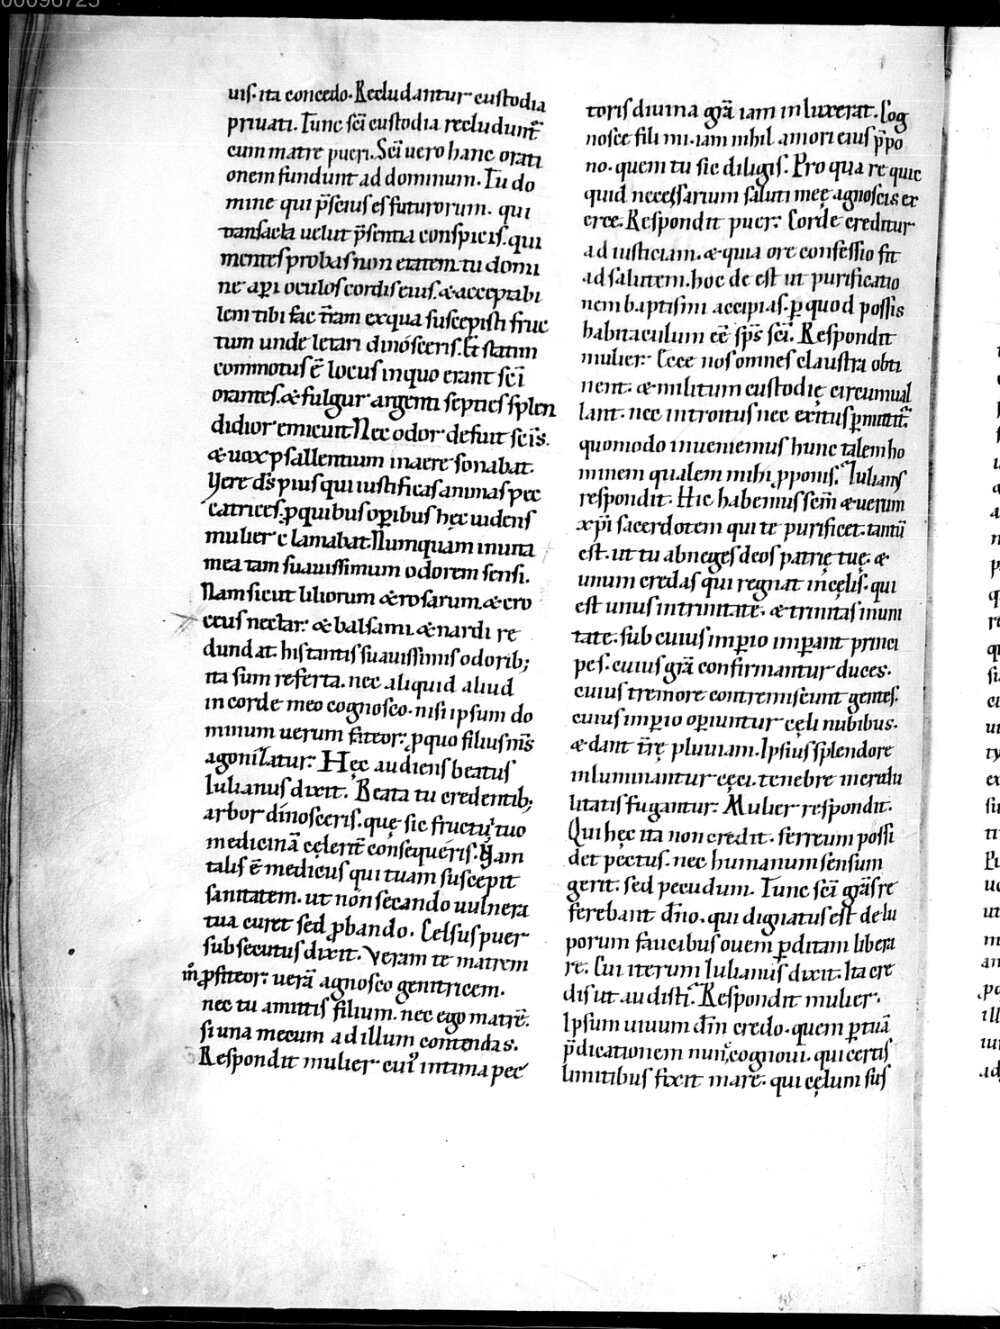 00096725
uis. ita concedo. Recludantur custodia
priuati. Tunc sc̄i custodia recludunt᷑
cum matre pueri. Sc̄i uero hanc orati
onem fundunt ad dominum. Tu do
mine qui p̄scius es futurorum. qui
transacta uelut p̄sentia conspicis. qui
mentes probas non etatem. tu domi
ne aꝑi oculos cordis eius. & acceptabi
lem tibi fac n̄am ex qua suscepisti fruc
tum unde letari dinósceris. Et statim
commotus ē locus in quo erant sc̄i
orantes. & fulgur argenti septies splen
didior emicuit. Nec odor defuit sc̄is.
& uox psallentium in aere sonabat.
Vere ds̄ pius qui iustificas animas pec
catrices. ꝑ quibus oꝑibus hęc uidens
mulier clamabat. Numquam in uita
mea tam suauissimum odorem sensi.
Nam sicut liliorum & rosarum. & cro
ceus nectar. & balsami. & nardi re
dundat. his tantis suauissimis odorib;
ita sum referta. nec aliquid aliud
in corde meo cognosco. nisi ipsum do
minum uerum fateor. ꝓ quo filius m̄s
agonizatur. Hęc audiens beatus
Iulianus dixit. Beata tu credentib;
arbor dinósceris. quę sic fructu tuo
medicinā cęlerit̄ consequeris. Nam
talis ē medicus qui tuam suscepit
sanitatem. ut non secando uulnera
tua curet sed ꝓbando. Celsus puer
subsecutus dixit. Veram te matrem
m̊ ꝓfiteor. uerā agnosco genitricem.
nec tu amittis filium. nec ego matrē.
si una mecum ad illum contendas.
Respondit mulier cui᷒ intima pec
toris diuina grā iam inluxerat. Cog
nosce fili mi. iam nihil amori eius p̄po
no. quem tu sic diligis. Pro qua re quic
quid necessarium saluti meę agnoscis ex
erce. Respondit puer. Corde creditur
ad iusticiam. & quia ore confessio fit
ad salutem. hoc de est ut purificatio
nem baptismi accipias. ꝑ quod possis
habitaculum eē sp̄s sc̄i. Respondit
mulier. Ecce nos omnes claustra obti
nent. & militum custodię circumual
lant. nec introitus nec exitus ꝑmittit᷑.
quomodo inueniemus hunc talem ho
minem qualem mihi ꝓponis. Iulianus
respondit. Hic habemus sc̄m & uerum
xp̄i sacerdotem qui te purificet. tantū
est. ut tu abneges deos patrię tuę. &
unum credas qui regnat in cęlis. qui
est unus in trinitate. & trinitas in uni
tate. sub cuius imꝑio imꝑant princi
pes. cuius grā confirmantur duces.
cuius tremore contremiscunt gentes.
cuius imꝑio oꝑiuntur cęli nubibus.
& dant t̄rę pluuiam. Ipsius splendore
inluminantur cęci. tenebre incredu
litatis fugantur. Mulier respondit.
Qui hęc ita non credit. ferreum possi
det pectus. nec humanum sensum
gerit. sed pecudum. Tunc sc̄i grās re
ferebant dn̄o. qui dignatus est de lu
porum faucibus ouem ꝑditam libera
re. Cui iterum Iulianus dixit. Ita cre
dis ut audisti. Respondit mulier.
Ipsum uiuum dn̄m credo. quem ꝑ tuā
p̄dicationem nunc cognoui. qui certis
limitibus fixit mare. qui cęlum sus